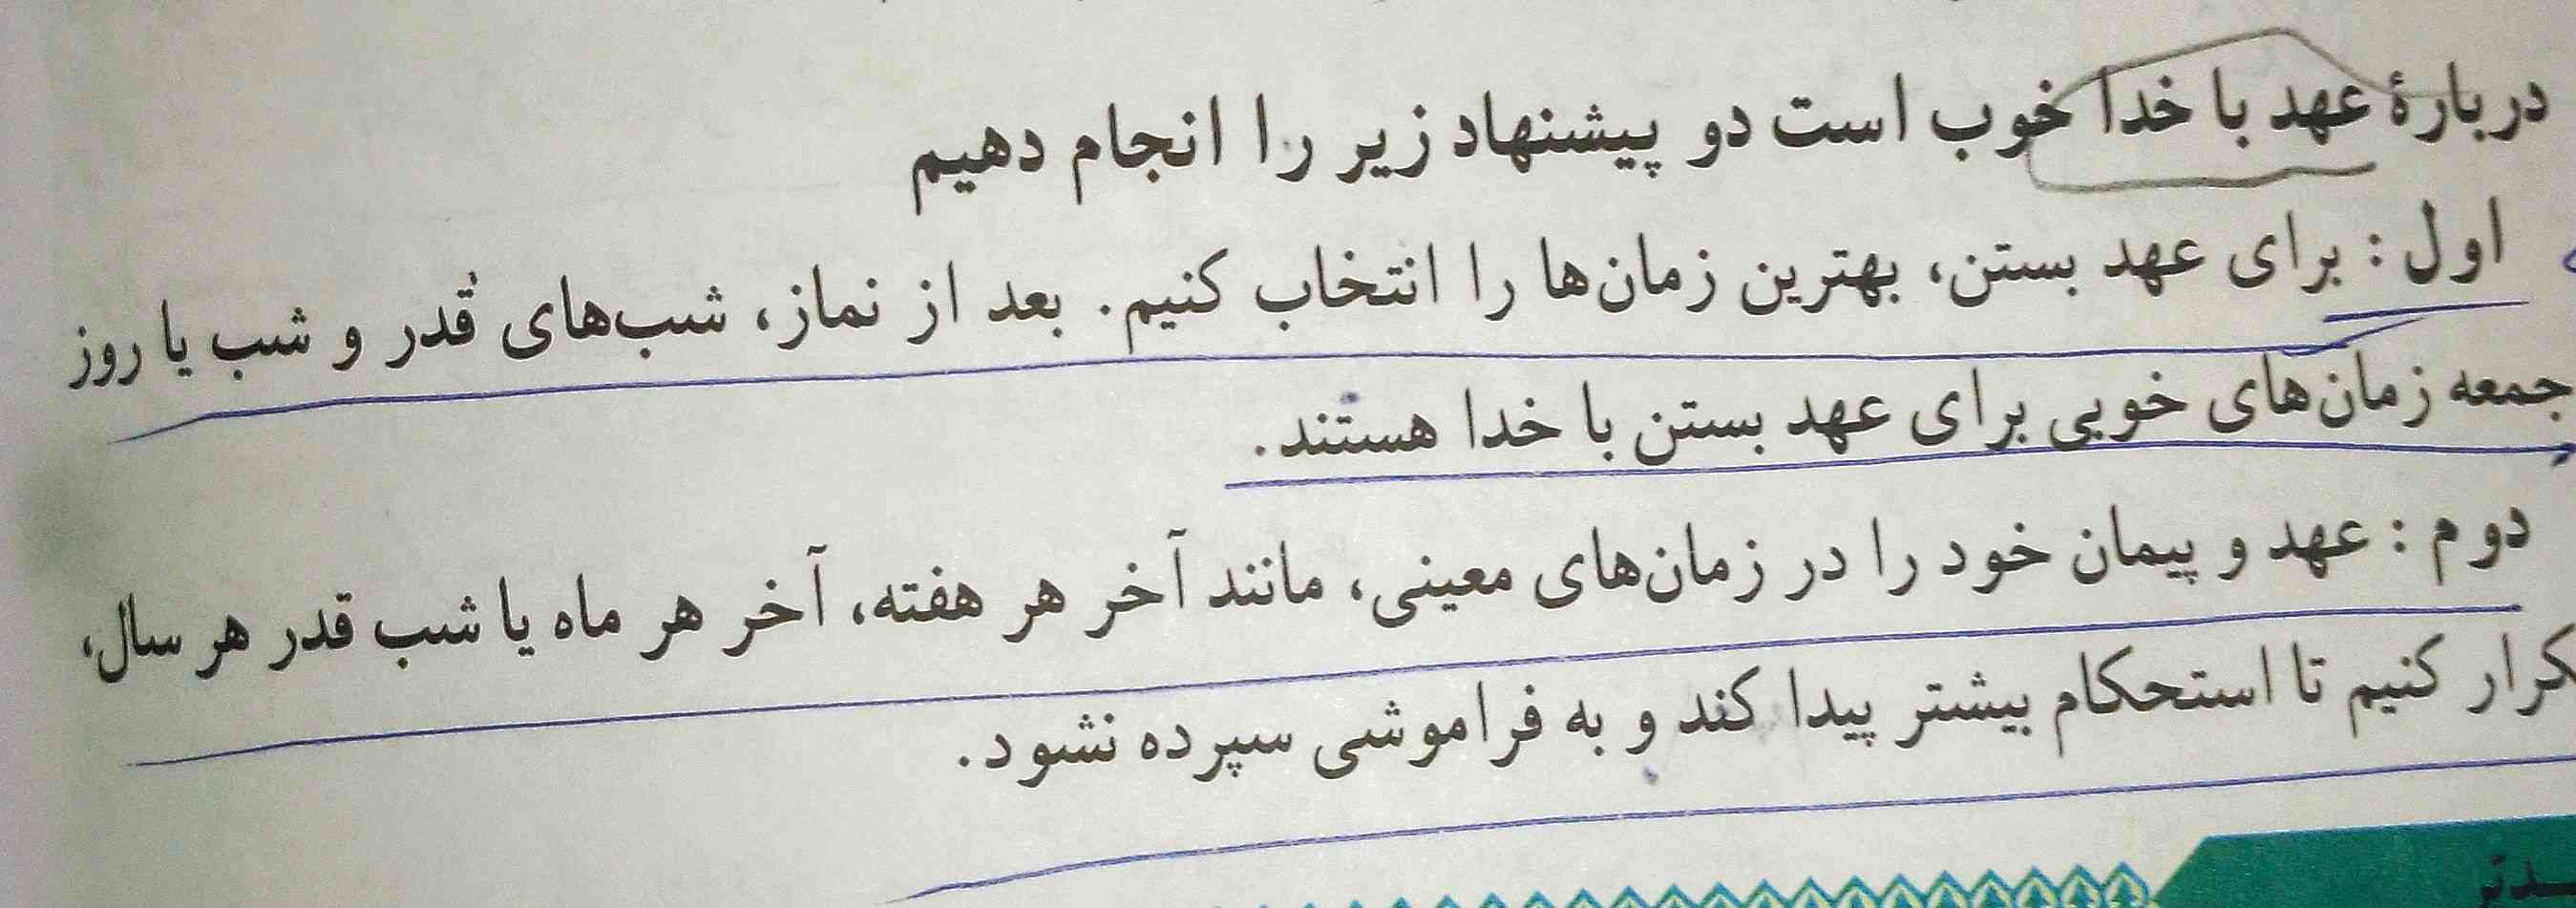 دربارهٔ عهد با خدا خوب است دو پیشنهاد زیر را انجام دهیم
اول : برای عهد بستن، بهترین زمان‌ها را انتخاب کنیم. بعد از نماز، شب‌های قدر و شب یا روز
جمعه زمان‌های خوبی برای عهد بستن با خدا هستند.
دوم : عهد و پیمان خود را در زمان‌های معینی، مانند آخر هر هفته، آخر هر ماه یا شب قدر هر سال،
کرار کنیم تا استحکام بیشتر پیدا کند و به فراموشی سپرده نشود.